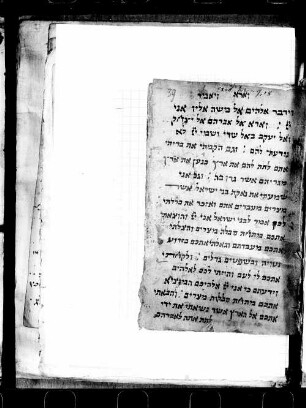 וארא
וידבר אלהים אל משה אליו אני
וארא אל אברהם אל יצחק
ואל יעקב באל שדי ושמי לא
נודעתי להם : וגם הקמתי את בריתי
אתם לתת להם את ארץ כנען את ארץ
מגריהם אשר גרו בה : וגם אני
שמעתי את נאקת בני ישראל אשר
מצרים מעבדים אתם ואזכר את בריתי
לכן אמור לבני ישראל אני והוצאתי
אתכם מתחת סבלת מצרים והצלתי
אתכם מעבדתם וגאלתי אתכם בזרוע
נטויה ובשפטים גדלים : ולקחתי
אתכם לי לעם והייתי לכם לאלהים
וידעתם כי אני אלהיכם המוציא
אתכם מתחת סבלות מצרים : והבאתי
אתכם אל הארץ אשר נשאתי את ידי
לתת אתה לאברהם